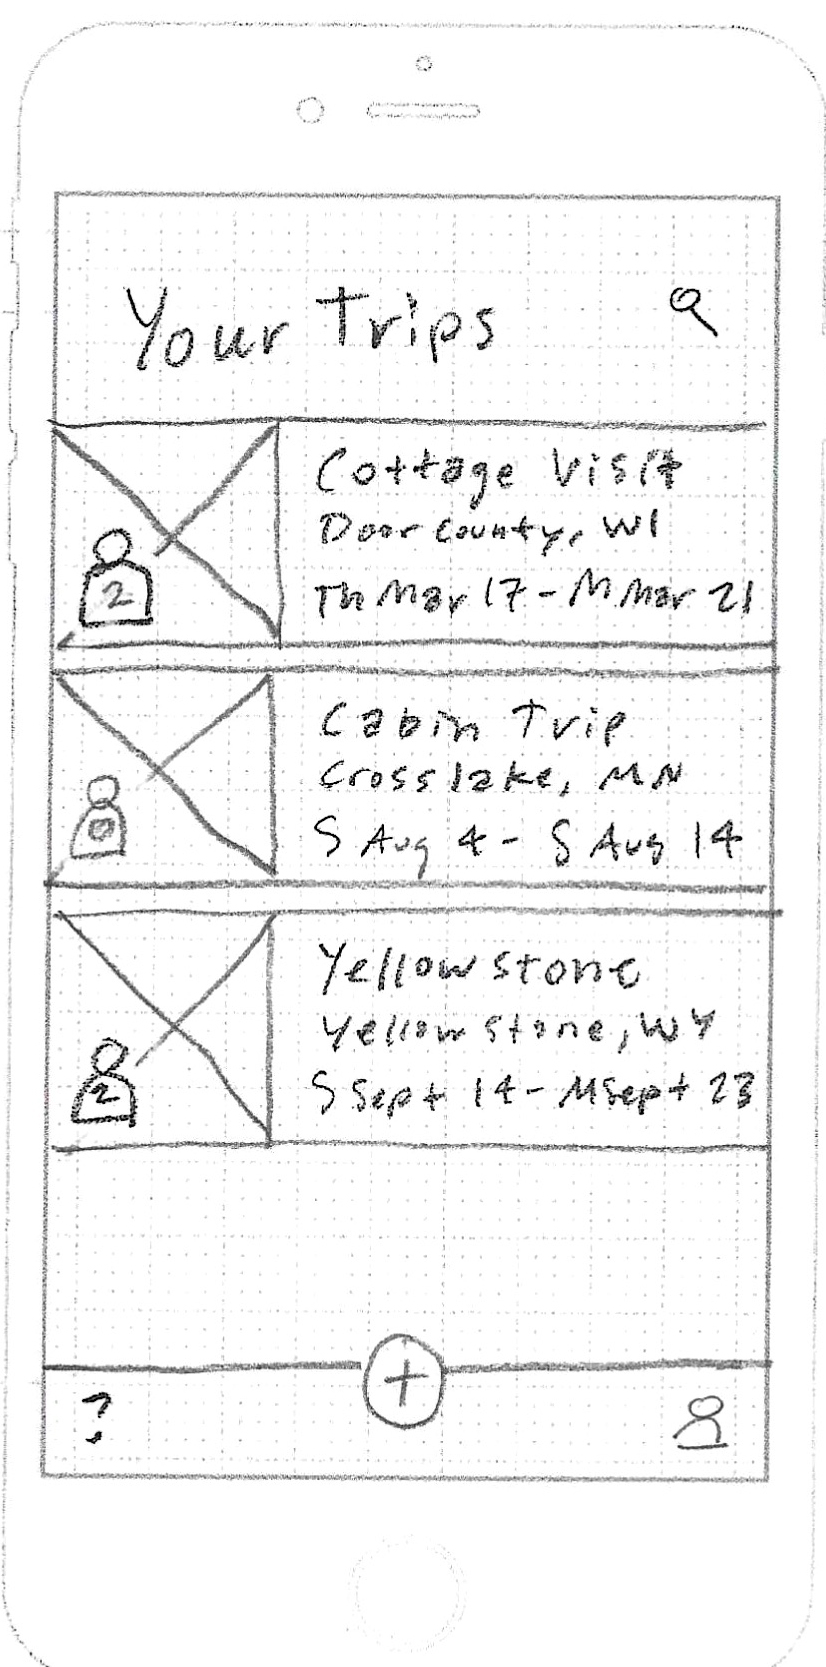 Your Trips
Cottage Visit
Door County, WI
2
Th Mar 17 - M Mar 21
Cabin Trip
Crosslake, MN
0
S Aug 4 - S Aug 14
Yellowstone
Yellowstone, WY
2
S Sept 14 - M Sept 23
+
?